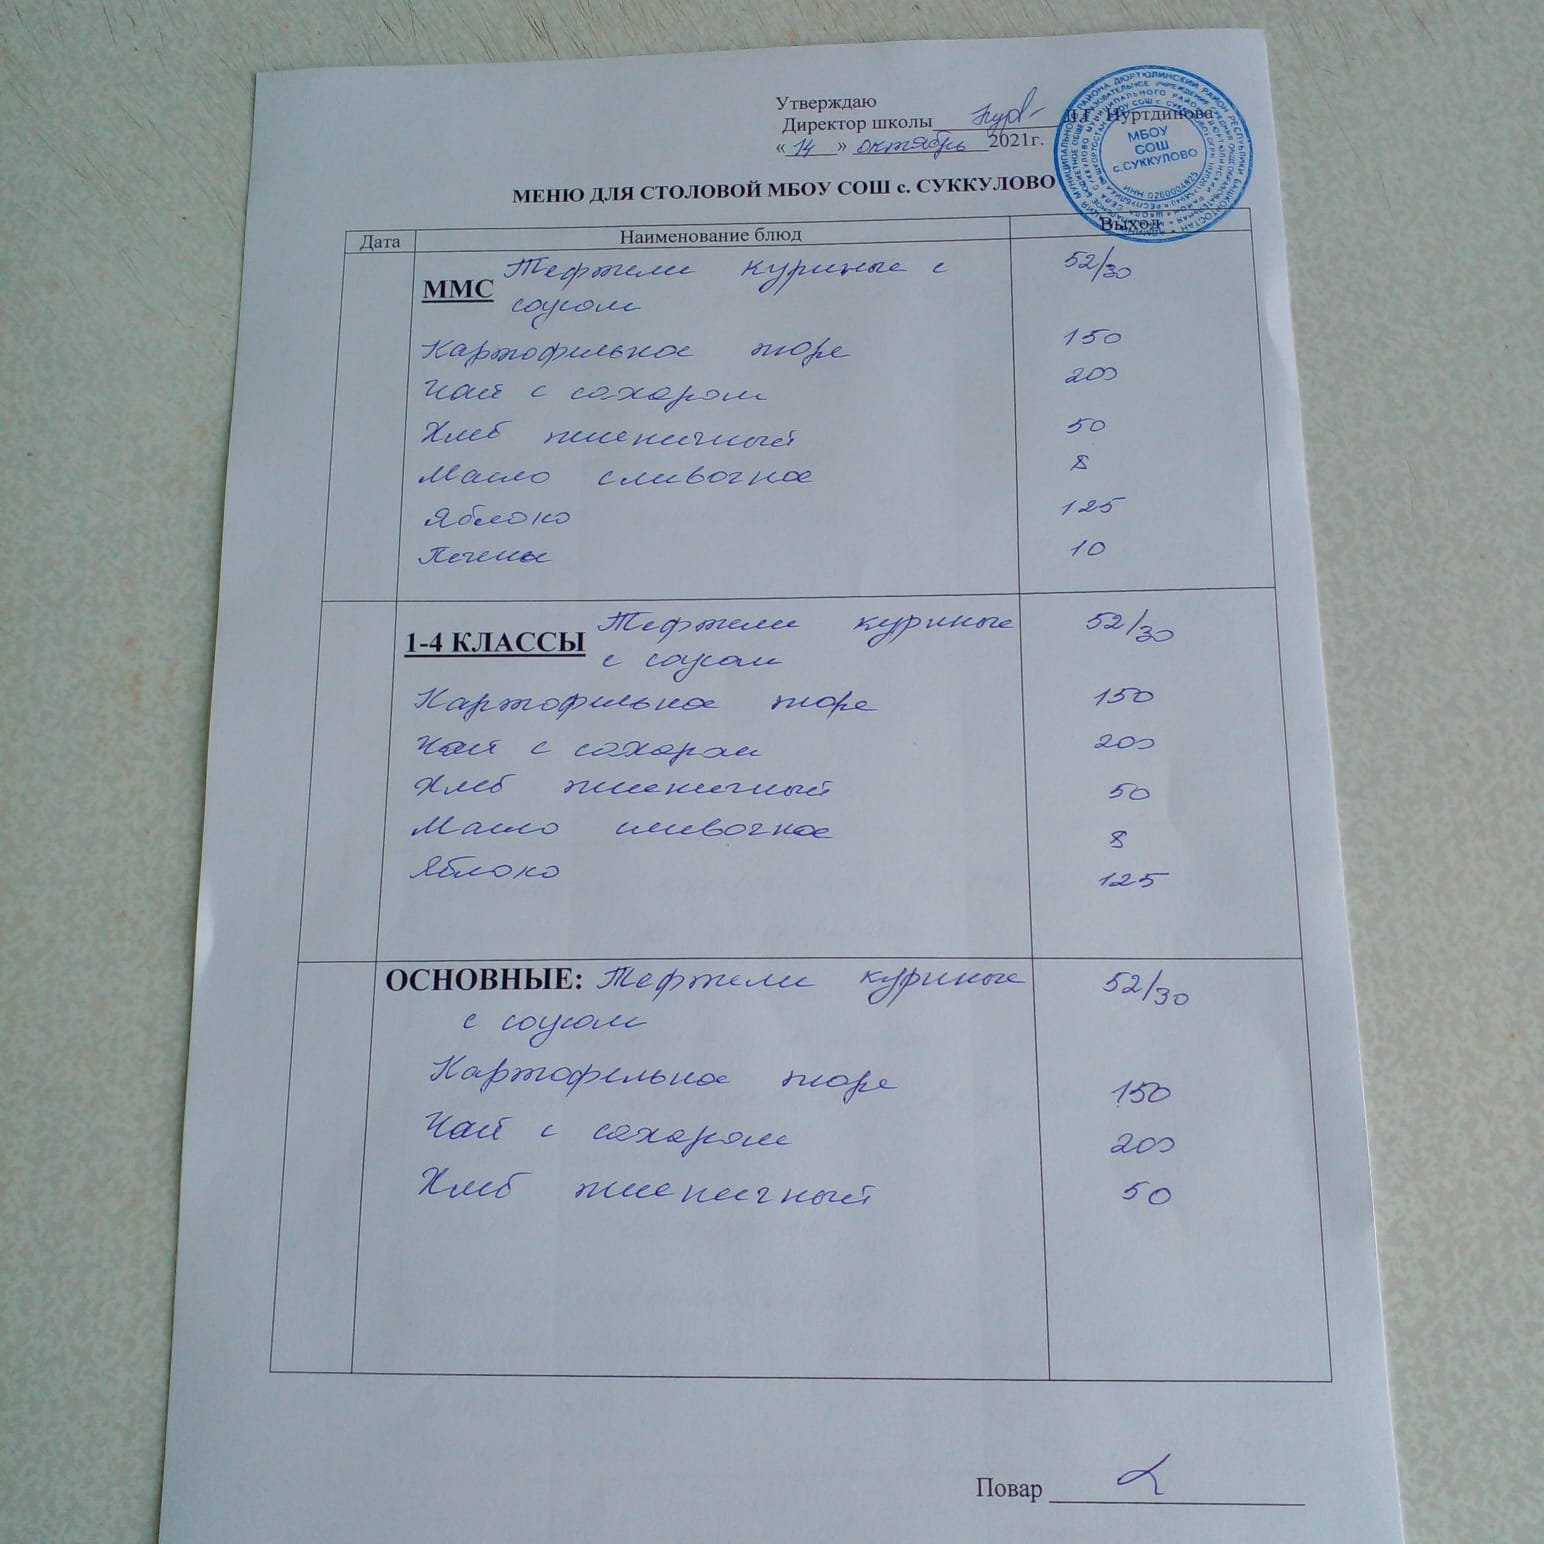 Утверждаю
Директор школы Нуртдинова
« 14 » октябрь 2021г.
МБОУ
СОШ
с.СУККУЛОВО
ИНН 0260004825
МЕНЮ ДЛЯ СТОЛОВОЙ МБОУ СОШ с. СУККУЛОВО
Дата Наименование блюд Выход
ММС Тефтели куриные с 52/30
соусом
Картофельное пюре 150
Чай с сахаром 200
Хлеб пшеничный 50
Масло сливочное 8
Яблоко 125
Печенье 10
1-4 КЛАССЫ Тефтели куриные 52/30
с соусом
Картофельное пюре 150
Чай с сахаром 200
Хлеб пшеничный 50
Масло сливочное 8
Яблоко 125
ОСНОВНЫЕ: Тефтели куриные 52/30
с соусом
Картофельное пюре 150
Чай с сахаром 200
Хлеб пшеничный 50
Повар